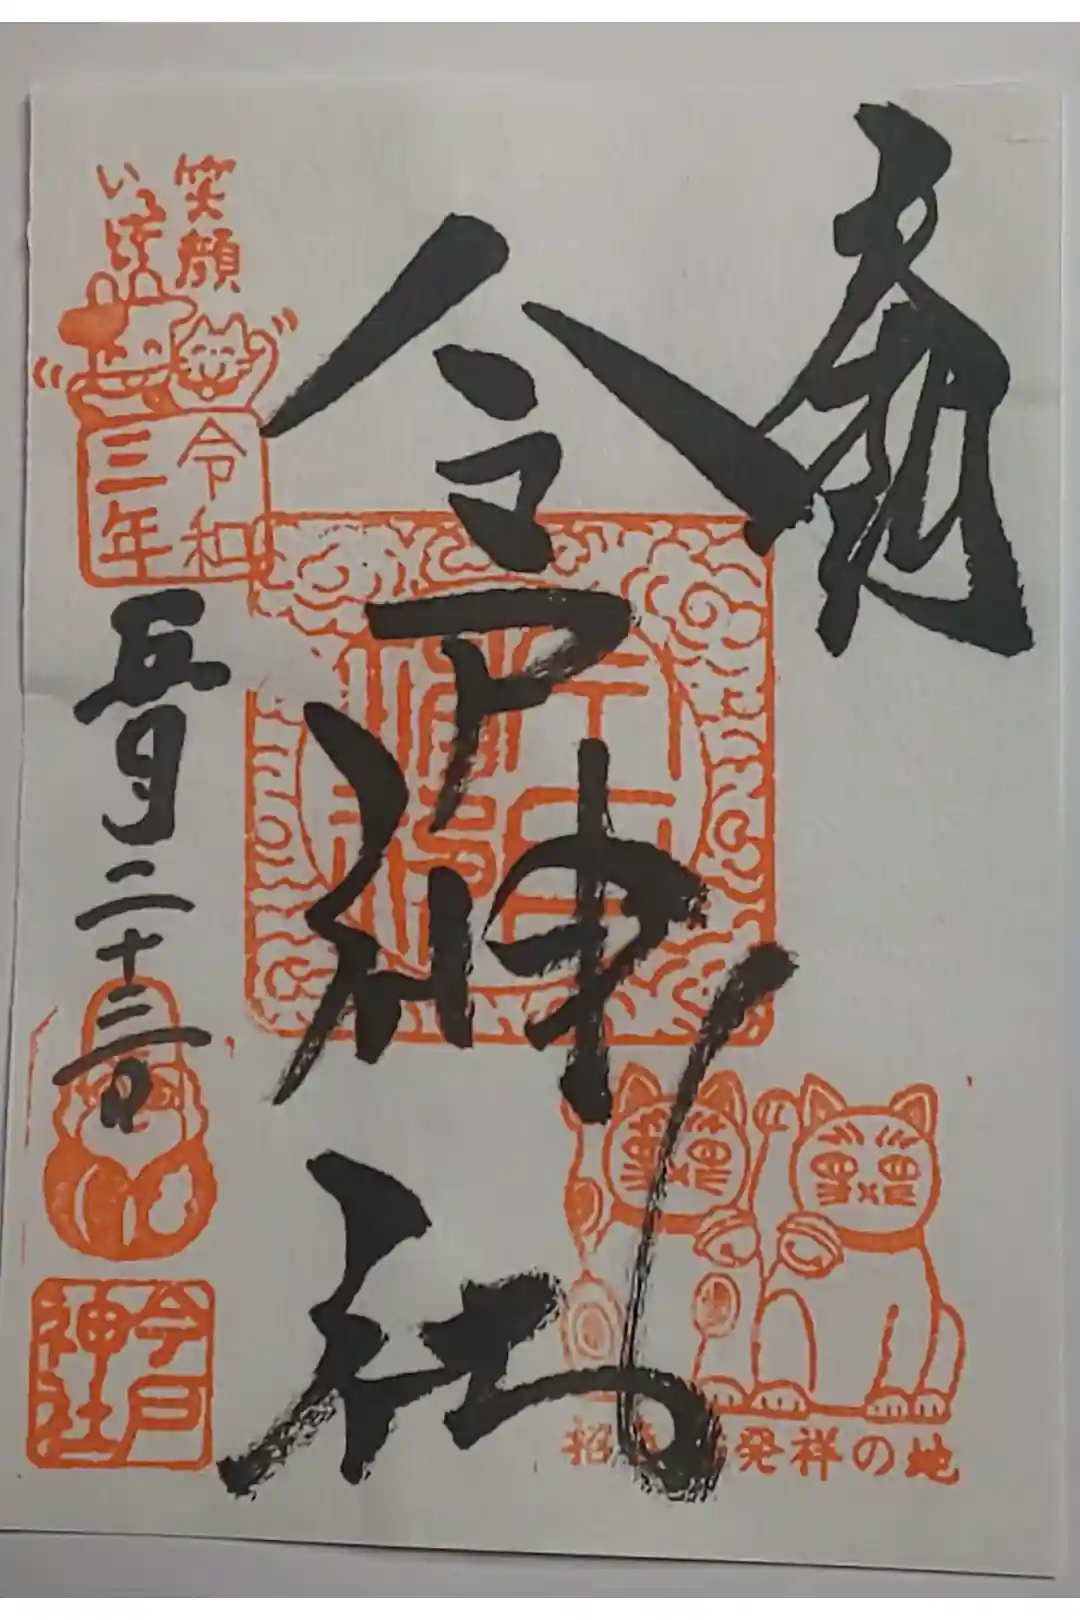 奉拝
今戸神社
招き猫発祥の地
笑顔
いっぱい
令和
三年
五月二十三日
今戸
神社